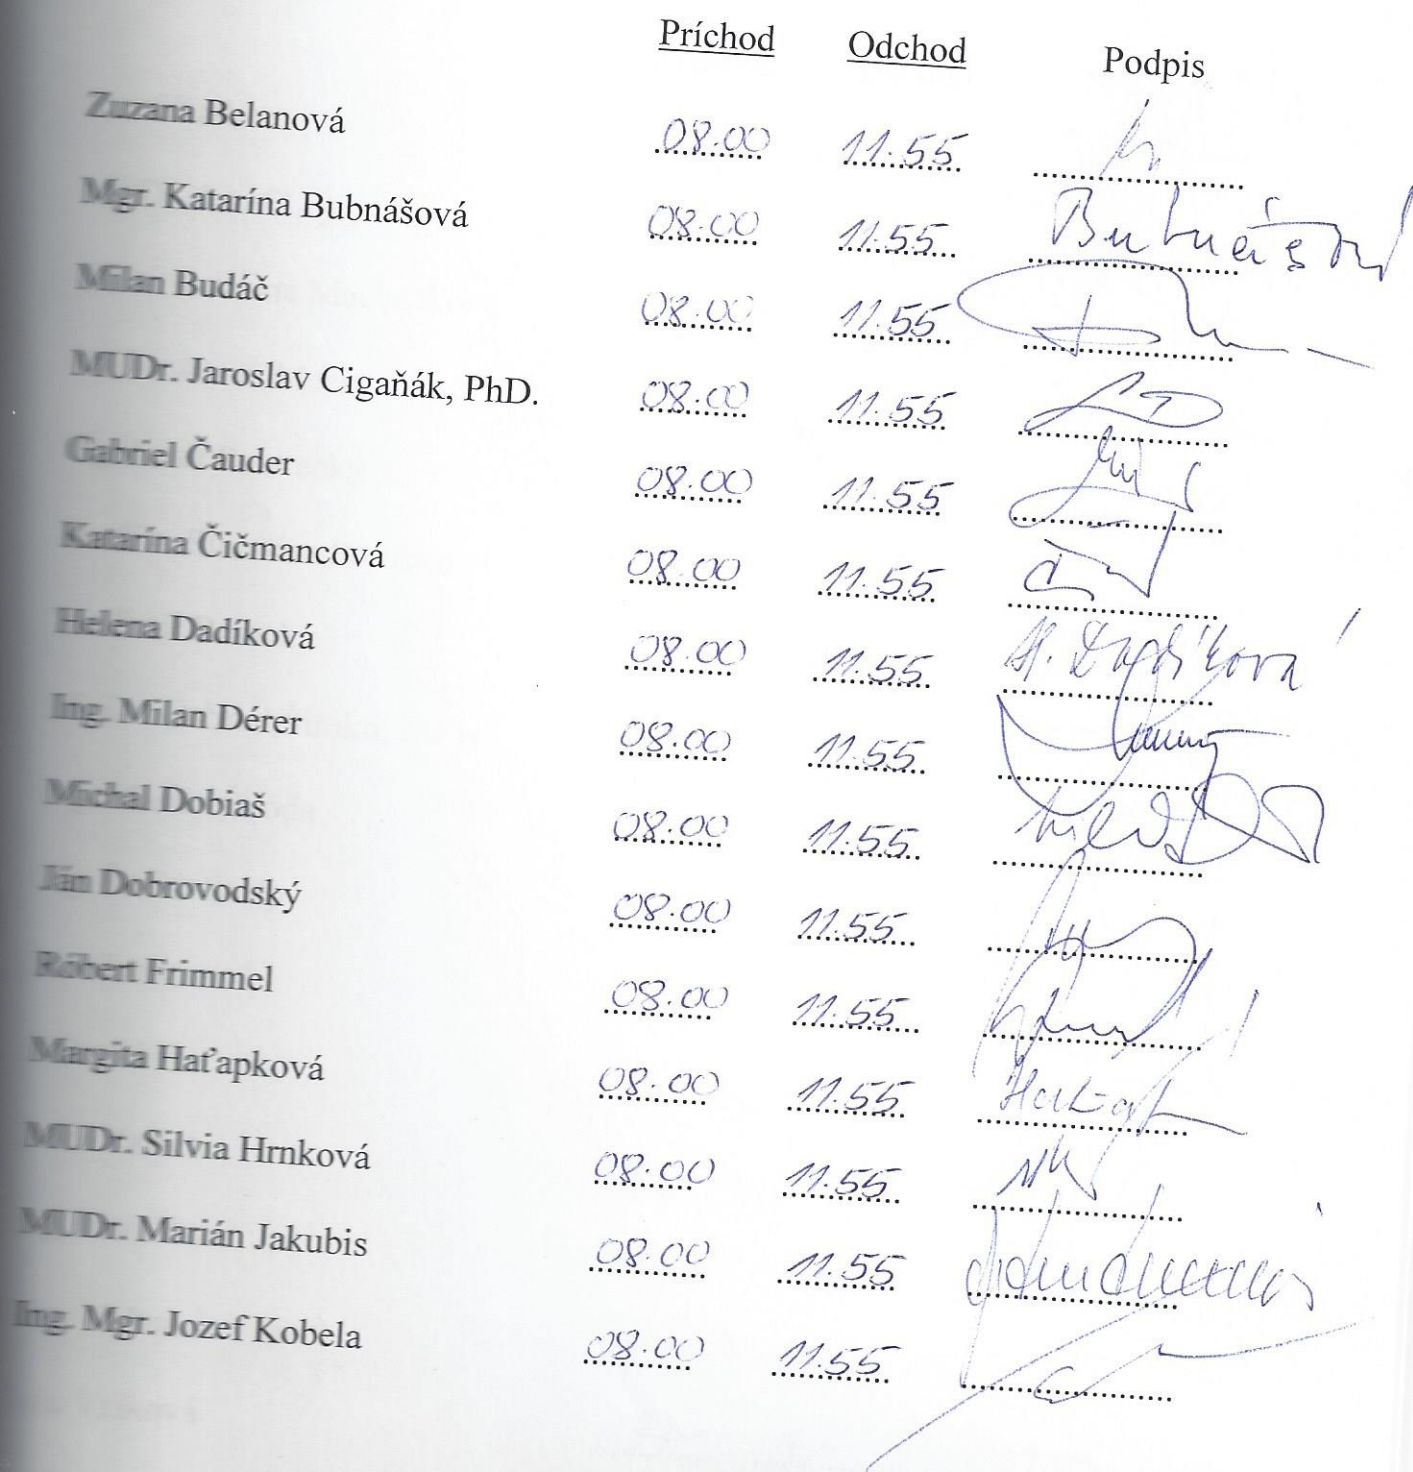 Príchod Odchod Podpis
Zuzana Belanová 08.00 11.55
Mgr. Katarína Bubnášová 08.00 11.55 Bubnášová
Milan Budáč 08.00 11.55
MUDr. Jaroslav Cigaňák, PhD. 08.00 11.55
Gabriel Čauder 08.00 11.55
Katarína Čičmancová 08.00 11.55
Helena Dadíková 08.00 11.55 H. Dadíková
Ing. Milan Dérer 08.00 11.55
Michal Dobiaš 08.00 11.55
Ján Dobrovodský 08.00 11.55
Róbert Frimmel 08.00 11.55
Margita Haťapková 08.00 11.55
MUDr. Silvia Hrnková 08.00 11.55
MUDr. Marián Jakubis 08.00 11.55
Ing. Mgr. Jozef Kobela 08.00 11.55